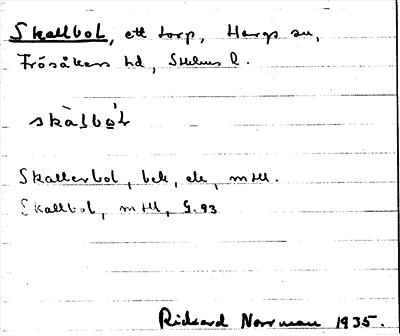 Skallbol, ett torp, Hargs sn,
Frösåkers hd, Sthlms l.
skàlbó̱l
Skallerbol, bek, ek, mtll.
Skallbol, mtll, G. 93
Rickard Norrman 1935.